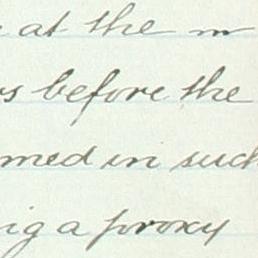 at the m
rs before the
med in such
ig a proxy